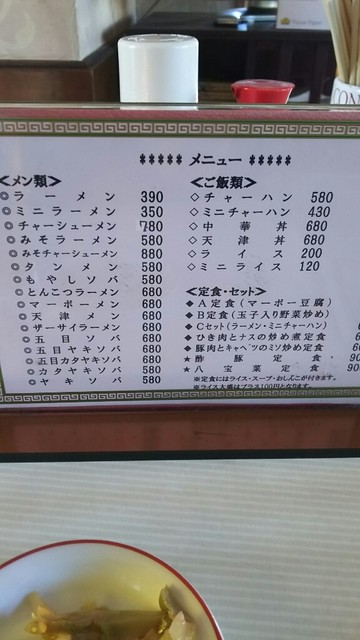 メニュー
<メン類>
◎ラーメン 390
◎ミニラーメン 350
◎チャーシューメン 780
◎みそラーメン 580
◎みそチャーシューメン 880
◎タンメン 580
◎もやしソバ 580
◎とんこつラーメン 680
◎マーボーメン 680
◎天津メン 680
◎ザーサイラーメン 680
◎五目ソバ 680
◎五目ヤキソバ 680
◎五目カタヤキソバ 680
◎カタヤキソバ 580
◎ヤキソバ 580
<ご飯類>
◇チャーハン 580
◇ミニチャーハン 430
◇中華丼 680
◇天津丼 680
◇ライス 200
◇ミニライス 120
<定食・セット>
◆A定食(マーボー豆腐)
◆B定食(玉子入り野菜炒め)
◆Cセット(ラーメン・ミニチャーハン)
◆ひき肉とナスの炒め煮定食
◆豚肉とキャベツのミソ炒め定食
★酢豚定食
★八宝菜定食
※定食にはライス・スープ・おしんこが付きます。
※ライス大盛はプラス100円となります。